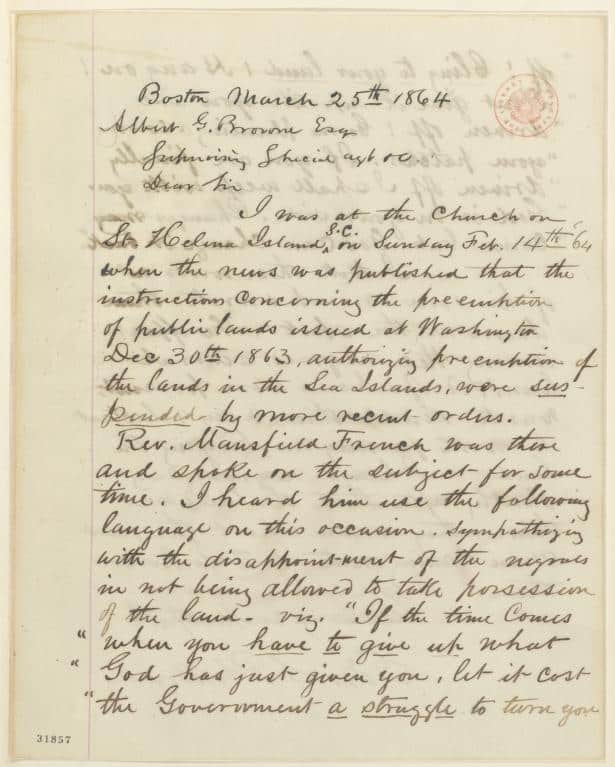 Boston March 25th 1864
Albert G. Browne Esq
Supervising Special agt &c.
Dear Sir
I was at the Church on
St. Helena Island, S.C. on Sunday Feb. 14th '64
when the news was published that the
instructions concerning the preemption
of public lands issued at Washington
Dec 30th 1863, authorizing preemption of
the lands in the Sea Islands, were sus-
pended by more recent orders.
Rev. Mansfield French was there
and spoke on the subject for some
time. I heard him use the following
language on this occasion. Sympathizing
with the disappointment of the negroes
in not being allowed to take possession
of the land - viz. "If the time comes
" when you have to give up what
" God has just given you, let it cost
" the Government a struggle to turn you
31857